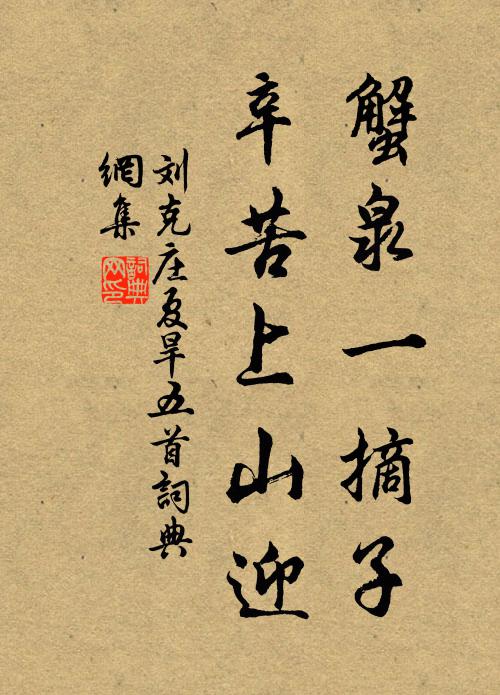 蟹泉一摘子
辛苦上山迎
刘克庄夏旱五首詞典
網集
詞典
网印